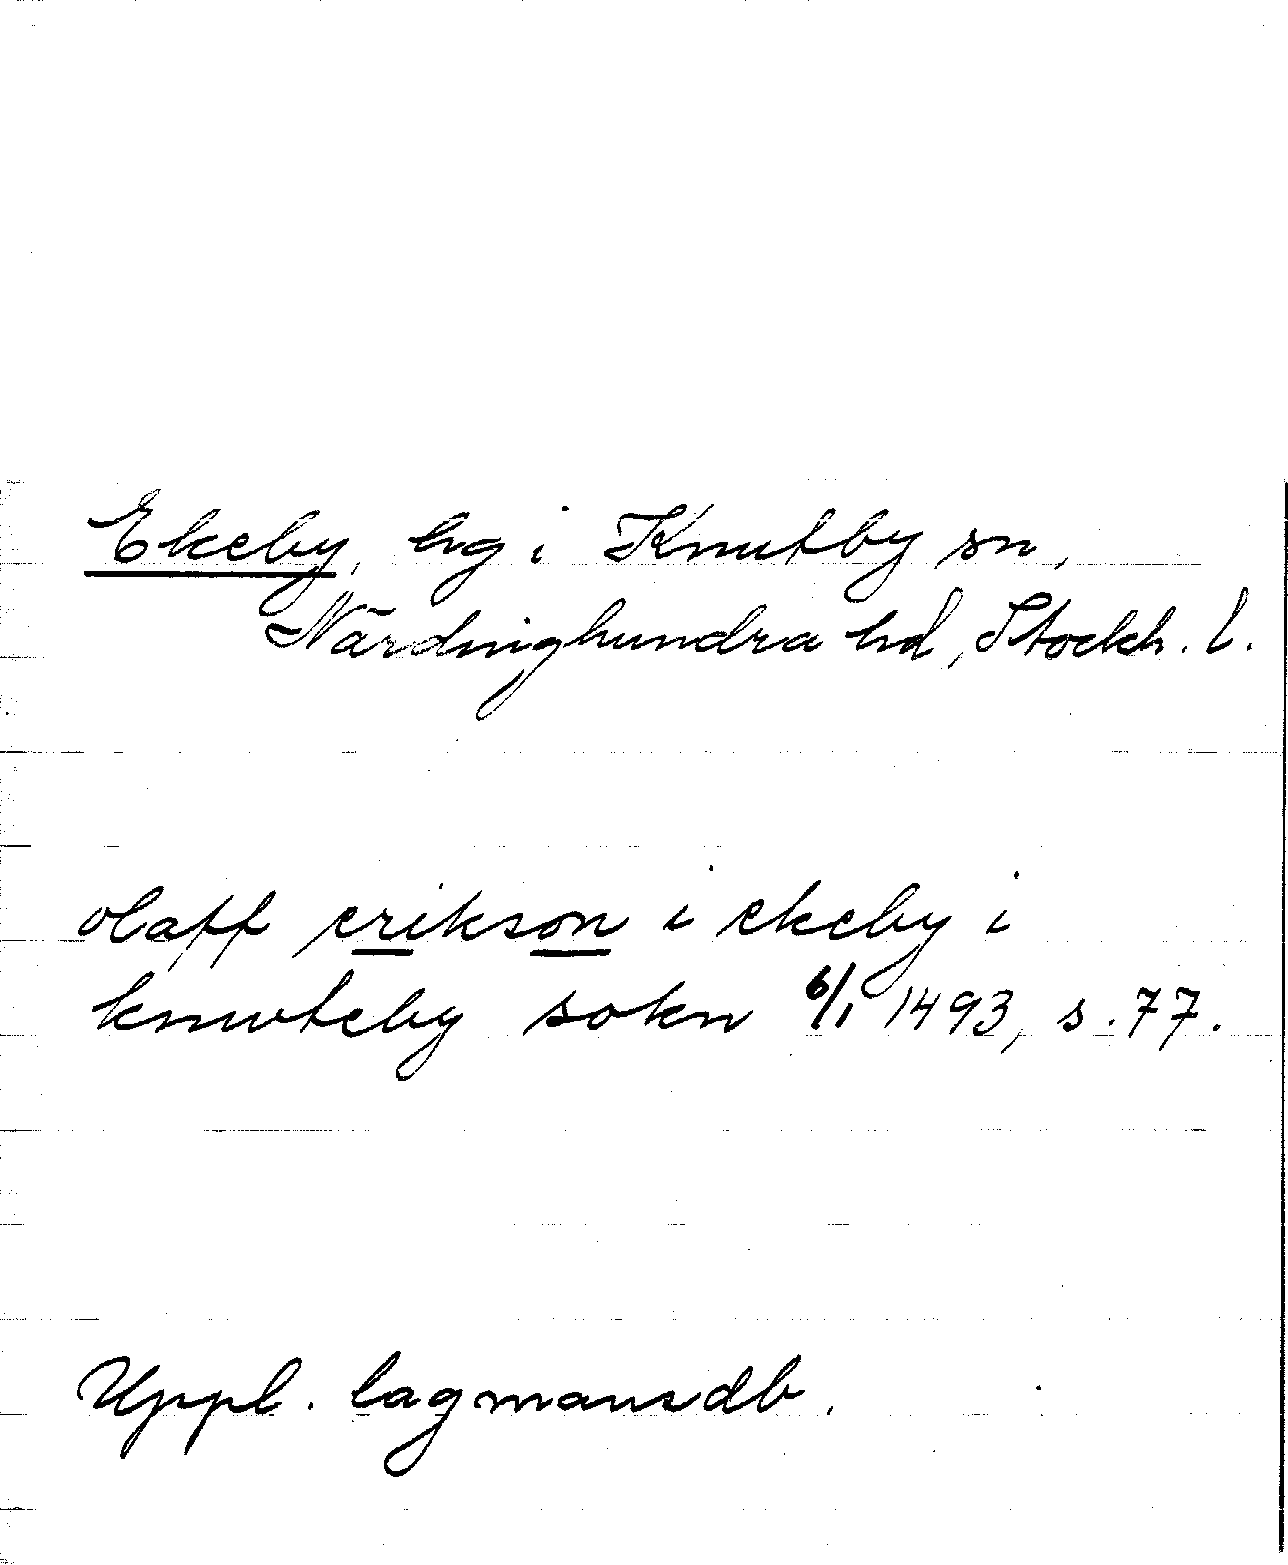 Ekeby, hg i Knutby sn,
Närdinghundra hd, Stockh. l.
olaff erikson i ekeby i
knwteby sokn 6/1 1493, s. 77.
Uppl. lagmansdb.